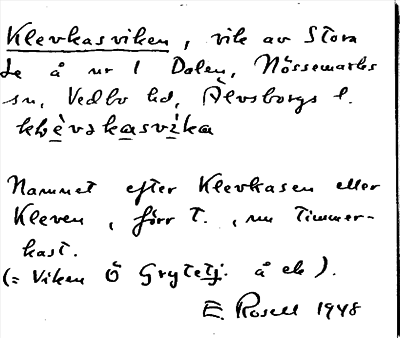 Klevkasviken, vik av Stora
Le å nr 1 Dalen, Nössemarks
sn, Vedbo hd, Älvsborgs l.
Namnet efter Klevkasen eller
Kleven, förr t., nu timmer-
kast.
(= Viken Ö Grytetj. å ek).
E. Rosell 1948